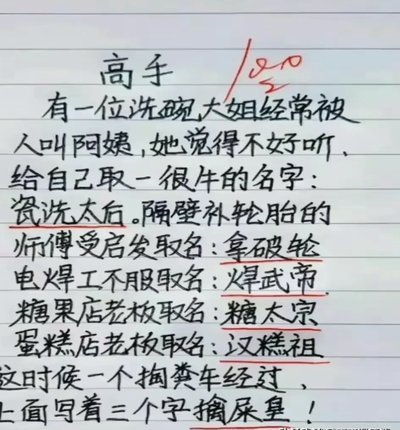 高手
100
有一位洗碗大姐经常被
人叫阿姨,她觉得不好听,
给自己取一很牛的名字:
瓷洗太后。隔壁补轮胎的
师傅受启发取名:拿破轮
电焊工不服取名:焊武帝
糖果店老板取名:糖太宗
蛋糕店老板取名:汉糕祖
这时候一个掏粪车经过,
上面写着三个字擒屎皇!